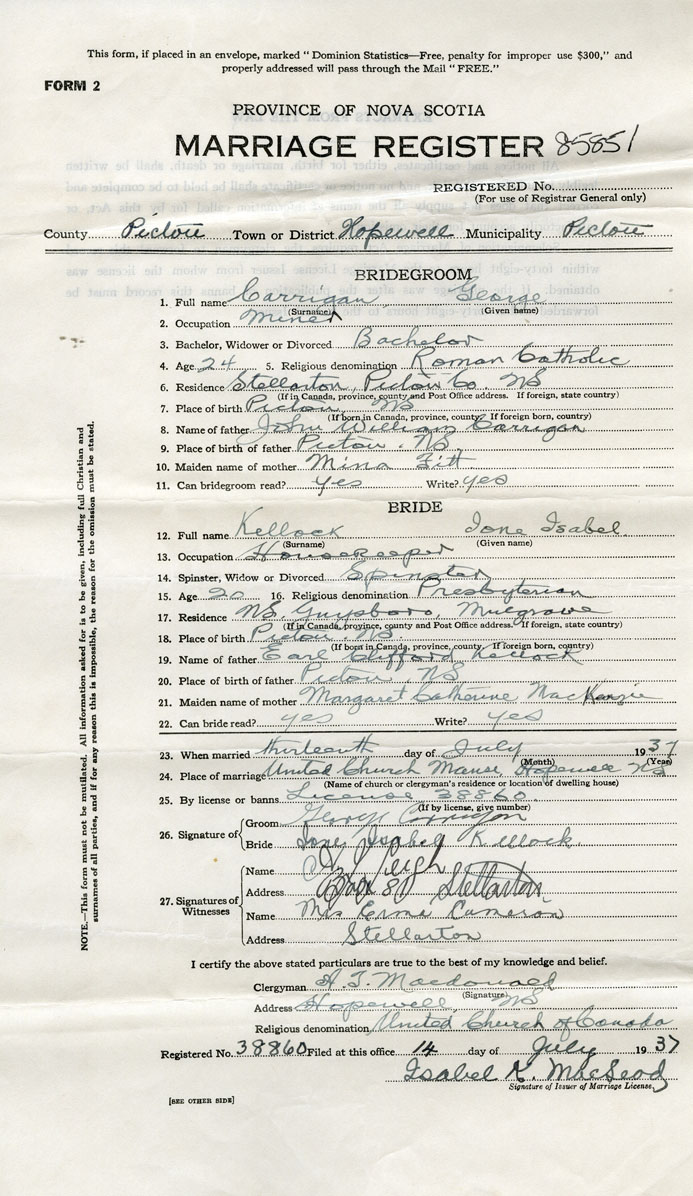 This form, if placed in an envelope, marked "Dominion Statistics—Free, penalty for improper use $300," and
properly addressed will pass through the Mail "FREE."
FORM 2
PROVINCE OF NOVA SCOTIA
MARRIAGE REGISTER 85851
REGISTERED No.
(For use of Registrar General only)
County Pictou Town or District Hopewell Municipality Pictou
BRIDEGROOM
1. Full name Carrigan George
(Surname) (Given name)
2. Occupation Miner
3. Bachelor, Widower or Divorced Bachelor
4. Age 24 5. Religious denomination Roman Catholic
6. Residence Stellarton, Pictou Co. NS
(If in Canada, province, county and Post Office address. If foreign, state country)
7. Place of birth Pictou NS
(If born in Canada, province, county. If foreign born, country)
8. Name of father John William Carrigan
9. Place of birth of father Pictou. NS.
10. Maiden name of mother Mina Fitt
11. Can bridegroom read? yes Write? yes
BRIDE
12. Full name Kellock Ione Isabel
(Surname) (Given name)
13. Occupation Housekeeper
14. Spinster, Widow or Divorced Spinster
15. Age 20 16. Religious denomination Presbyterian
17. Residence NS. Guysboro, Mulgrave
(If in Canada, province, county and Post Office address. If foreign, state country)
18. Place of birth Pictou. NS.
(If born in Canada, province, county. If foreign born, country)
19. Name of father Earl Clifford Kellock
20. Place of birth of father Pictou. NS
21. Maiden name of mother Margaret Catherine MacKenzie
22. Can bride read? yes Write? yes
23. When married thirteenth day of July 1937
(Month) (Year)
24. Place of marriage United Church Manse, Hopewell NS
(Name of church or clergyman's residence or location of dwelling house)
25. By license or banns License 38860
(If by license, give number)
26. Signature of Groom George Carrigan
Bride Ione Isabel Kellock
27. Signatures of Witnesses
Name
Address Box 80 Stellarton
Name Mrs Erma Cameron
Address Stellarton
I certify the above stated particulars are true to the best of my knowledge and belief.
Clergyman A. T. Macdonald
(Signature)
Address Hopewell, NS
Religious denomination United Church of Canada
Registered No. 38860 Filed at this office 14 day of July 1937
Isabel K. MacLeod
Signature of Issuer of Marriage License
[SEE OTHER SIDE]
NOTE.—This form must not be mutilated. All information asked for is to be given, including full Christian and
surnames of all parties, and if for any reason this is impossible, the reason for the omission must be stated.